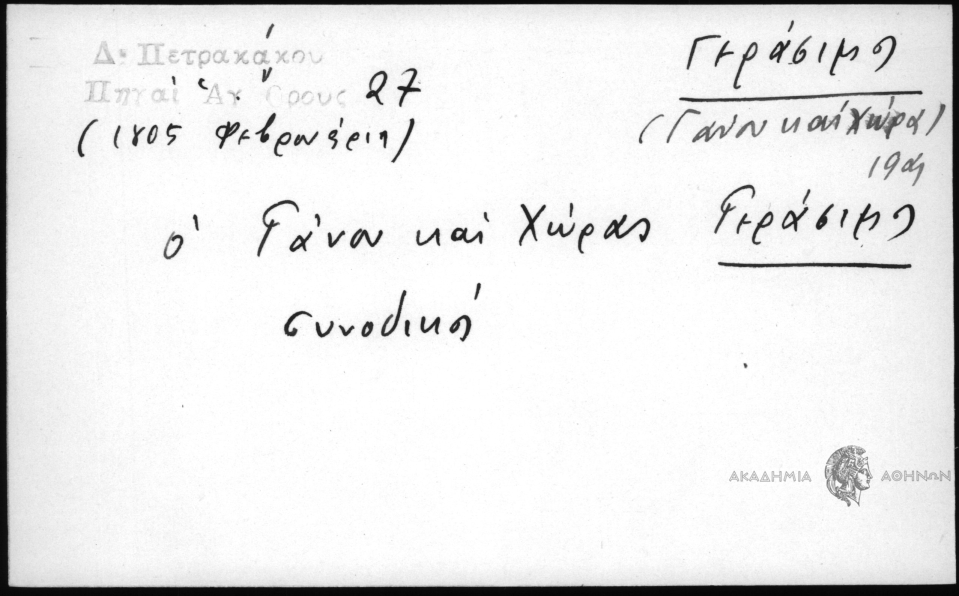 Δ. Πετρακάκου
Πηγαὶ Ἁγ. Ὄρους 27
(1805 Φεβρουάριος)
Γεράσιμος
(Γάνου καὶ Χώρα)
19ος
ὁ Γάνου καὶ Χώρας Γεράσιμος
συνοδικός
ΑΚΑΔΗΜΙΑ ΑΘΗΝΩΝ